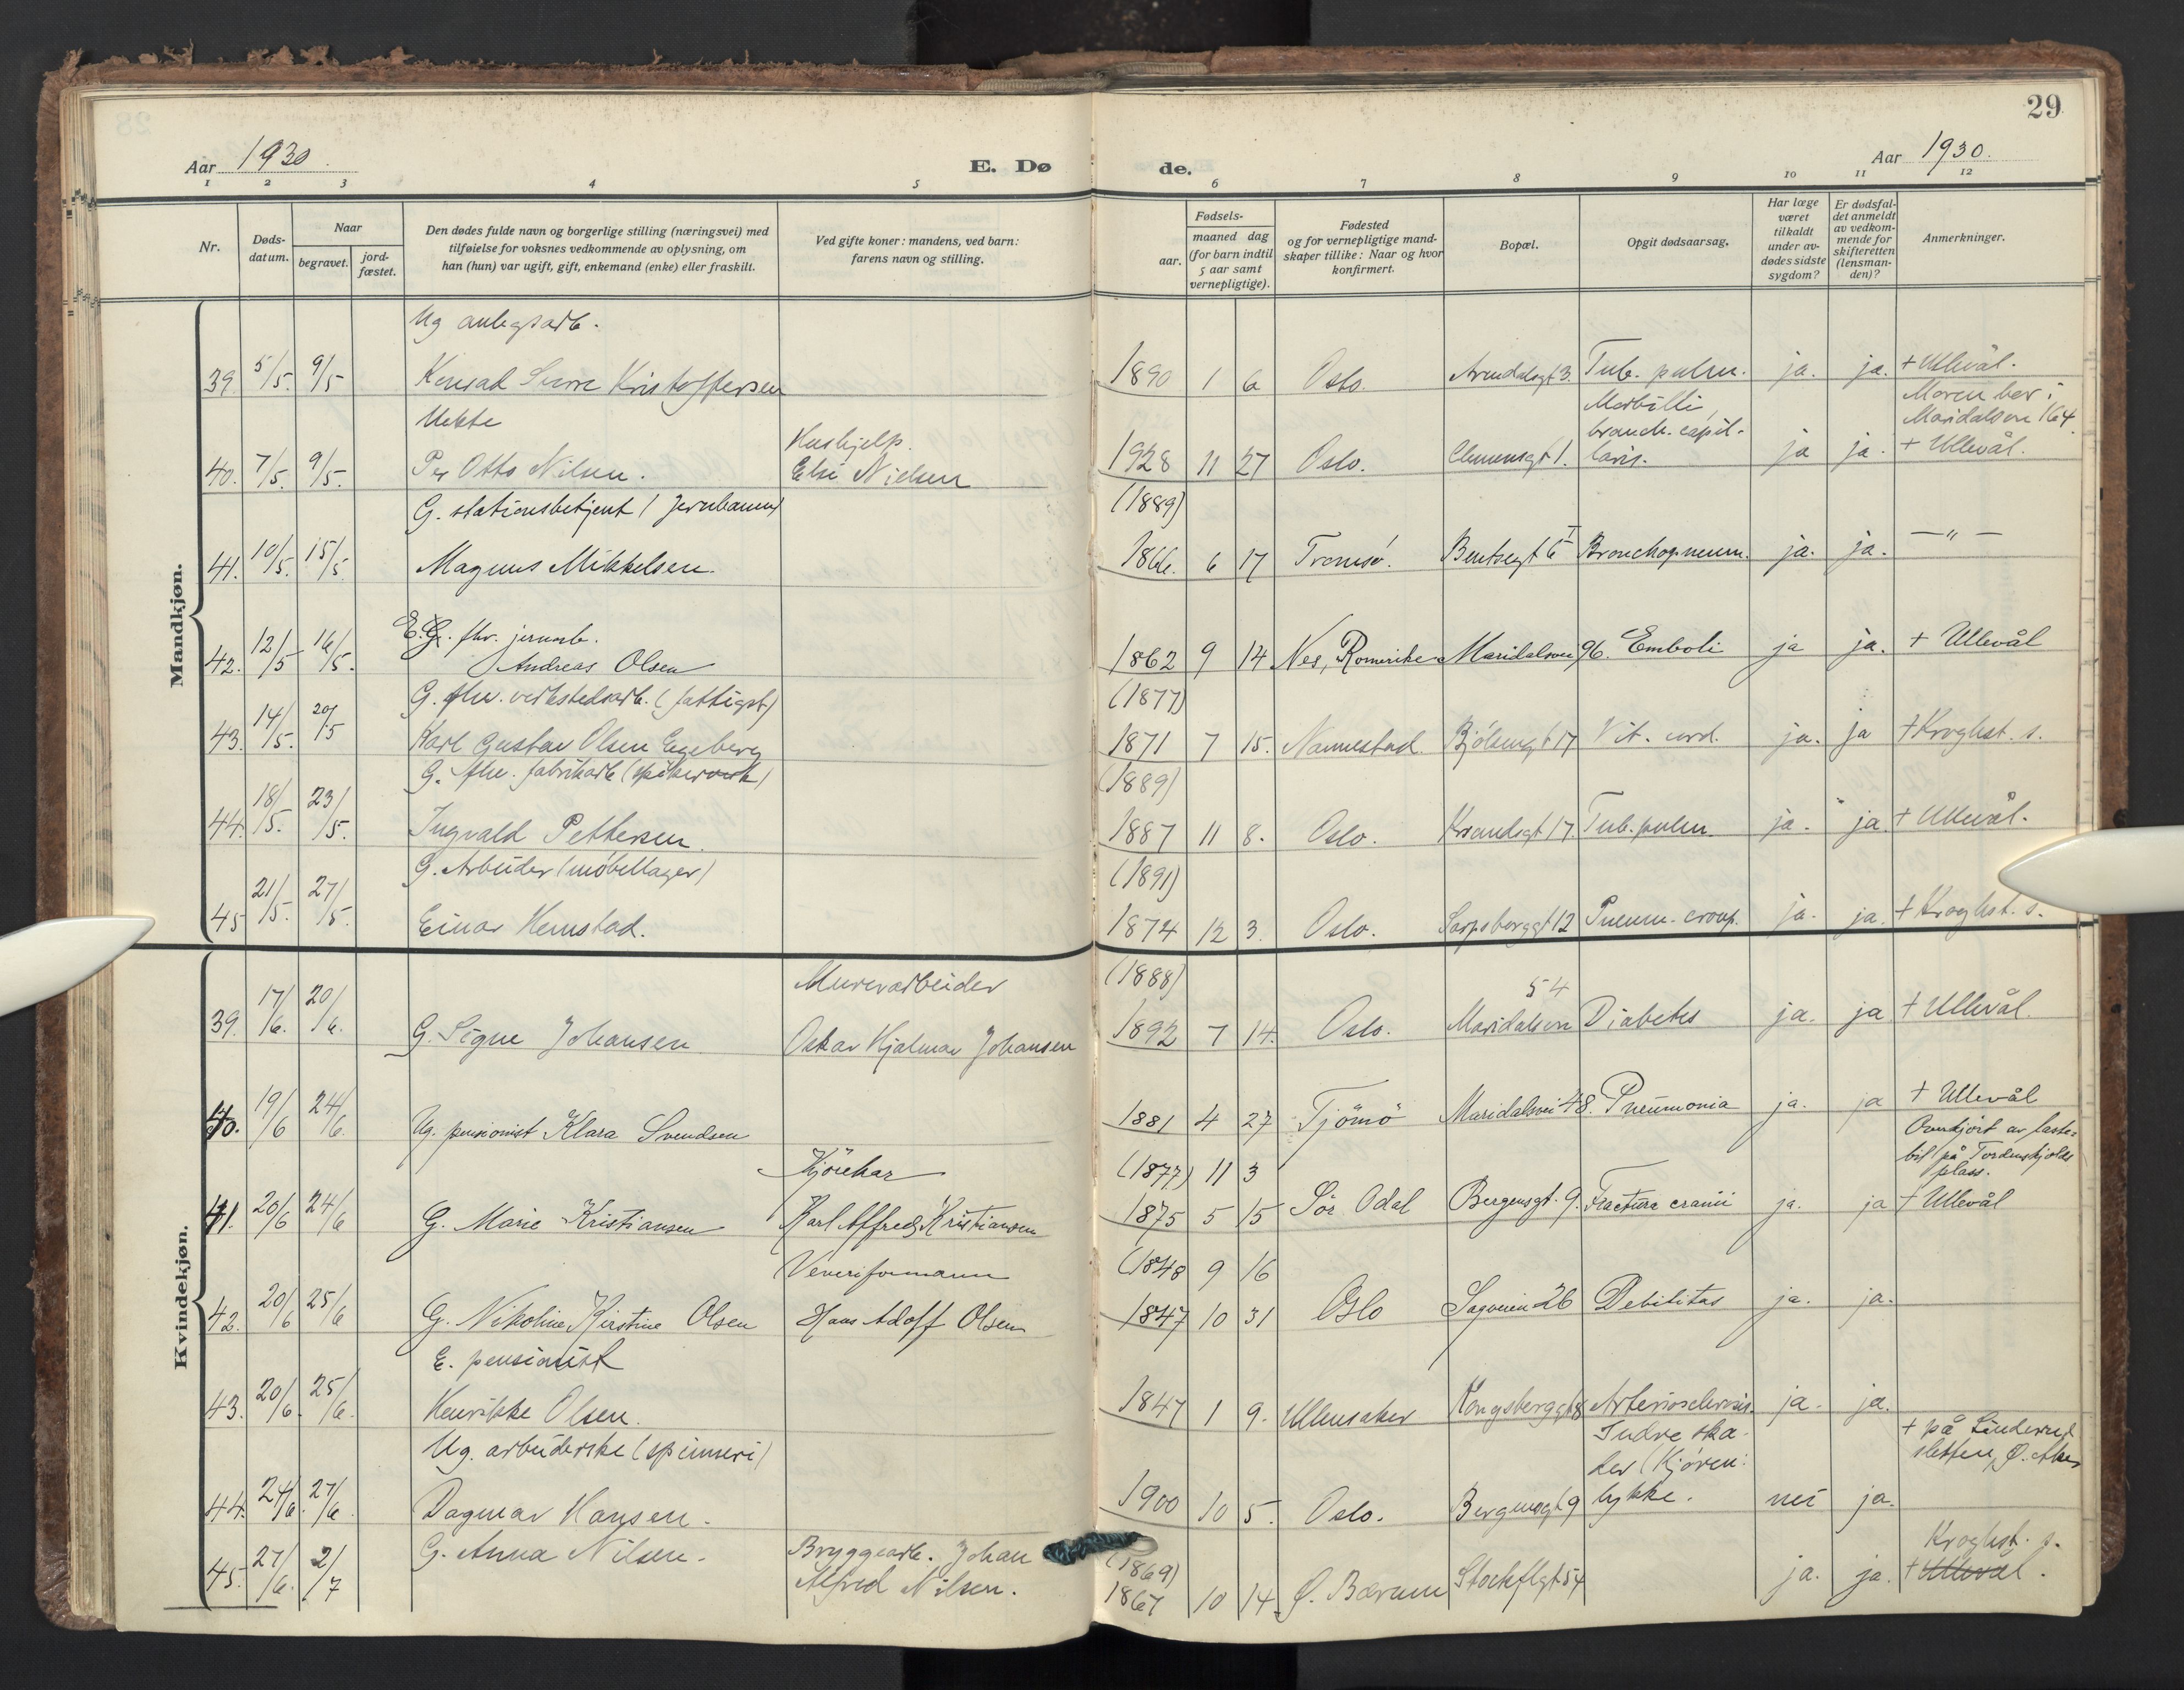 29
Aar 1930.
E. Døde.
Aar 1930.
1 2 3 4 5 6 7 8 9 10 11 12
Nr.
Døds-
datum.
Naar
begravet.
jord-
fæstet.
Den dødes fulde navn og borgerlige stilling (næringsvei) med
tilføielse for voksnes vedkommende av oplysning, om
han (hun) var ugift, gift, enkemand (enke) eller fraskilt.
Ved gifte koner: mandens, ved barn:
farens navn og stilling.
Fødsels-
aar.
maaned dag
(for barn indtil
5 aar samt
vernepligtige).
Fødested
og for vernepligtige mand-
skaper tillike: Naar og hvor
konfirmert.
Bopæl.
Opgit dødsaarsag.
Har læge
været
tilkaldt
under av-
dødes sidste
sygdom?
Er dødsfal-
det anmeldt
av vedkom-
mende for
skifteretten
(lensman-
den)?
Anmerkninger.
Mandkjøn.
Ug anlegsarb.
39. 5/5. 9/5 Kristoffersen 1890 1 6 Oslo. Arendalsgt 3. Tub. pulm. ja. ja. + Ullevål.
Uekte
Hushjelp.
Morbilli,
bronch. capil-
Moren bor i
Maridalsvn 164.
40. 7/5. 9/5. Per Otto Nilsen. Elsi Nielsen 1928 11 27 Oslo. Clemensgt 1. laris. ja ja. + Ullevål.
G. stationsbetjent (Jernbanen)
(1889)
41. 10/5. 15/5 Magnus Mikkelsen. 1866. 6 17 Tromsø. Bentsegt 6 I Bronchopneum. ja. ja. — " —
E. G. fhv. jernarb.
42. 12/5 16/5. Andreas Olsen 1862 9 14 Nes, Romerike Maridalsvn 96. Emboli ja ja. + Ullevål
G. fhv. verkstedsarb. (fattigst)
(1877)
43. 14/5. 20/5 Karl Gustav Olsen Engeberg 1871 7 15. Nannestad. Bjølsengt 17 Vit. cord. ja. ja + Kroghst. s.
G. fhv. fabrikarb (spikerverk)
(1889)
44. 18/5. 23/5. Ingvald Pettersen. 1887 11 8. Oslo. Krsandsgt 17. Tub. pulm. ja. ja. + Ullevål.
G. Arbeider (møbellager)
(1891)
45 21/5. 27/5. Einar Hemstad. 1874 12 3. Oslo. Sarpsborggt 12 Pneum. croup. ja. ja. + Kroghst. s.
Kvindekjøn.
Murerarbeider
(1888)
54
39. 17/6. 20/6. G. Signe Johansen Oskar Hjalmar Johansen 1892 7 14. Oslo. Maridalsvn Diabetes ja. ja + Ullevål.
40. 19/6 24/6. Ug. pensionist Klara Svendsen 1881 4 27 Tjömö Maridalsvei 48. Pneumonia ja. ja + Ullevål
Kjörekar
(1877) 11 3
Overkjört av laste-
bil på Tordenskjolds
plass.
41. 20/6 24/6 G. Marie Kristiansen Karl Alfred Kristiansen 1875 5 15 Sör Odal Bergensgt. 9. Fractura cranii ja. ja + Ullevål
Veveriformann
(1848 9 16
42. 20/6 25/6 G. Nikoline Kirstine Olsen Hans Adolf Olsen 1847 10 31 Oslo Sagveien 26 Debilitas ja. ja.
E. pensionist
43. 20/6. 25/6. Henrikke Olsen. 1847 1 9. Ullensaker Kongsberggt 8 Arteriosclerosis. ja. ja.
Ug. arbeiderske (spinneri)
Indre ska-
der (Kjøreu-
+ på Linderud
sletten, Ø. Aker
44. 24/6. 27/6. Dagmar Hansen. 1900 10 5. Oslo. Bergensgt 9 lykke. nei ja.
45. 27/6. 2/7 G. Anna Nilsen. Bryggearb. Johan
Alfred Nilsen.
(1869)
1867 10 14. Ø. Bærum Stockflgt 54 ja. ja. Kroghst. s.
+ Ullevål.